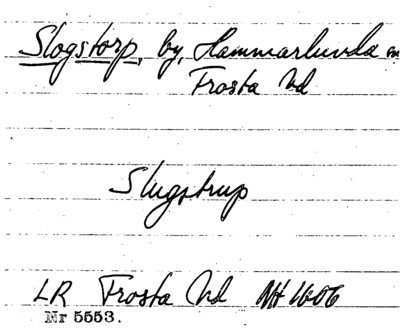 Slogstorp, by, Hammarlunda sn
Frosta hd
Slugstrup
LR Frosta hd NH 1606
Nr 5553.